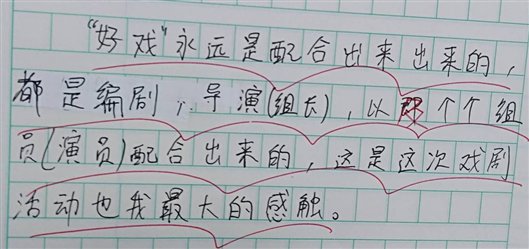 “好戏”永远是配合出来出来的，
都是编剧，导演(组长)，以及个个组
员(演员)配合出来的，这是这次戏剧
活动也我最大的感触。